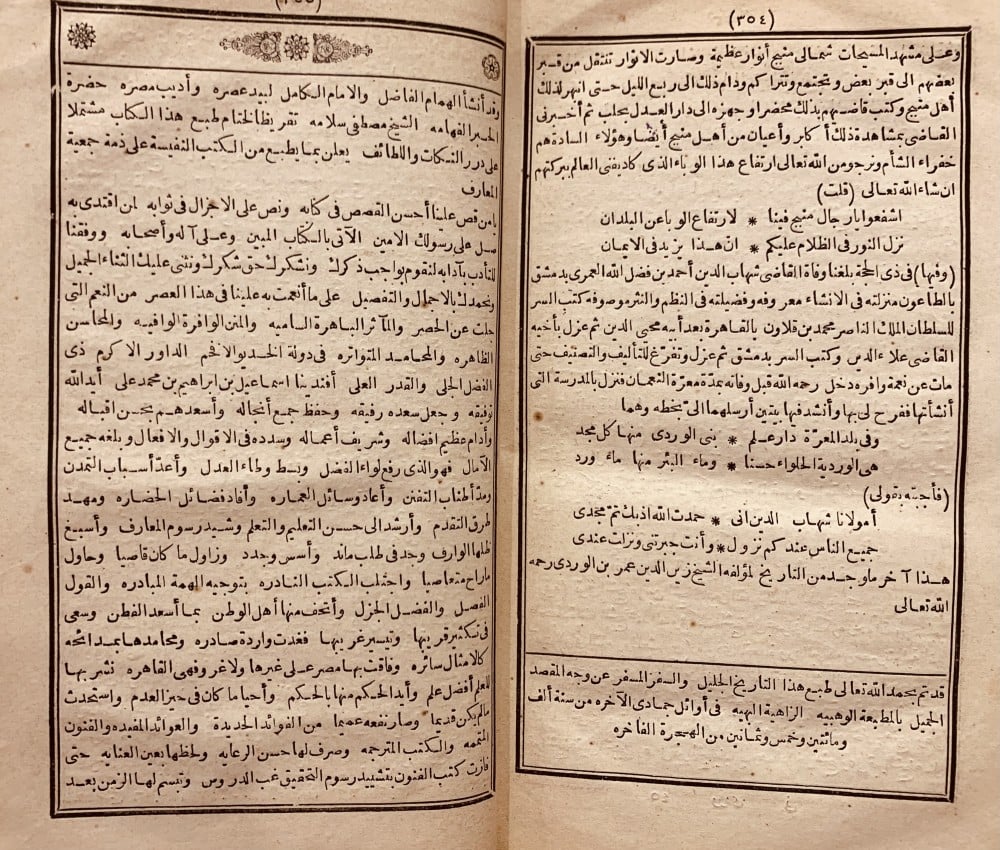 (٣٥٤)
وعلى مشهد المسيحات شمالى منبج أنوار عظيمة وصارت الانوار تنتقل من قبر
بعضهم الى قبر بعض وتجتمع وتتراكم ودام ذلك الى ربع الليل حتى انبهر لذلك
أهل منبج وكتب قاضيهم بذلك محضرا وجهزه الى دار العدل بحلب ثم أخبرنى
القاضى بمشاهدة ذلك أكابر وأعيان من أهل منبج أيضا وهؤلاء السادة هم
خفراء الشأم ونرجو من الله تعالى ارتفاع هذا الوباء الذى كاد يفنى العالم ببركتهم
ان شاء الله تعالى (قلت)
اشفعوا يا رجال منبج فينا * لارتفاع الوباء عن البلدان
نزل النور فى الظلام عليكم * ان هذا يزيد فى الايمان
(وفيها) فى ذى الحجة بلغنا وفاة القاضى شهاب الدين أحمد بن فضل الله العمرى بدمشق
بالطاعون منزلته فى الانشاء معروفه وفضيلته فى النظم والنثر موصوفه كتب السر
للسلطان الملك الناصر محمد بن قلاون بالقاهرة بعد أبيه محيى الدين ثم عزل بأخيه
القاضى علاء الدين وكتب السر بدمشق ثم عزل وتفرغ للتأليف والتصنيف حتى
مات عن نعمة وافره دخل رحمه الله قبل وفاته بمدة معرة النعمان فنزل بالمدرسة التى
أنشأتها ففرح لى بها وأنشد فيها بيتين أرسلهما الى بخطه وهما
وفى بلد المعرة دار علم * بنى الوردى منها كل مجد
هى الوردية الحلواء حسنا * وماء البئر منها ماء ورد
(فأجبته بقولى)
أمولانا شهاب الدين انى * حمدت الله اذ بك تم مجدى
جميع الناس عندكم نزول * وأنت جبرتنى ونزلت عندى
هذا آخر ما وجد من التاريخ لمؤلفه الشيخ زين الدين عمر بن الوردى رحمه
الله تعالى
قد تم بحمد الله تعالى طبع هذا التاريخ الجليل والسفر المسفر عن وجه المقصد
الجميل بالمطبعة الوهبيه الزاهية البهيه فى أوائل جمادى الآخره من سنة ألف
ومائتين وخمس وثمانين من الهجرة الفاخره
(٣٥٥)
وقد أنشأ الهمام الفاضل والامام الكامل لبيد عصره وأديب مصره حضرة
الحبر الفهامه الشيخ مصطفى سلامه تقريظا لختام طبع هذا الكتاب مشتملا
على درر النكات واللطائف يعلن بما يطبع من الكتب النفيسة على ذمة جمعية
المعارف
يا من قص علينا أحسن القصص فى كتابه ونص على الاجزال فى ثوابه لمن اقتدى به
صل على رسولك الامين الآتى بالكتاب المبين وعلى آله وأصحابه ووفقنا
للتأدب بآدابه لنقوم بواجب ذكرك ونشكرك حق شكرك ونثنى عليك الثناء الجميل
ونحمدك بالاجمال والتفصيل على ما أنعمت به علينا فى هذا العصر من النعم التى
جلت عن الحصر والمآثر الباهرة الساميه والمنن الوافرة الوافيه والمحاسن
الظاهره والمحامد المتواتره فى دولة الخديو الافخم الداور الاكرم ذى
الفضل الجلى والقدر العلى أفندينا اسماعيل بن ابراهيم بن محمد على أيد الله
توفيقه وجعل سعده رفيقه وحفظ جميع أنجاله وأسعدهم بحسن اقباله
وأدام عظيم افضاله وشريف أعماله وسدده فى الاقوال والافعال وبلغه جميع
الآمال فهو الذى رفع لواء الفضل وبسط وطاء العدل وأعد أسباب التمدن
ومد أطناب التفنن وأعاد وسائل العماره وأفاد فضائل الحضاره ومهد
طرق التقدم وأرشد الى حسن التعليم والتعلم وشيد رسوم المعارف وأسبغ
ظلها الوارف وجد فى طلب ماند وأسس وجدد وزاول ما كان قاصيا وحاول
ما راح متعاصيا واجتلب الكتب النادره بتوجيه الهمة المبادره والقول
الفصل والفضل الجزل وأتحف منها أهل الوطن بما أسعد الفطن وسعى
فى تكثير قريبها وتيسير غريبها فغدت واردة صادره ومحامدها بمدائحه
كالامثال سائره وفاقت بها مصر على غيرها ولا غرو فهى القاهره نشر بها
للعلم أفضل علم وأيد الحكم منها بالحكم وأحيا ما كان فى حيز العدم واستحدث
ما لم يكن قديما وصار نفعه عميما من الفوائد الجديدة والعوائد المفيده والفنون
المتممه والكتب المترجمه وصرف لها حسن الرعايه ولحظها بعين العنايه حتى
فازت كتب الفنون بتشييد رسوم التحقيق غب الدروس وتبسم لها الزمن بعد